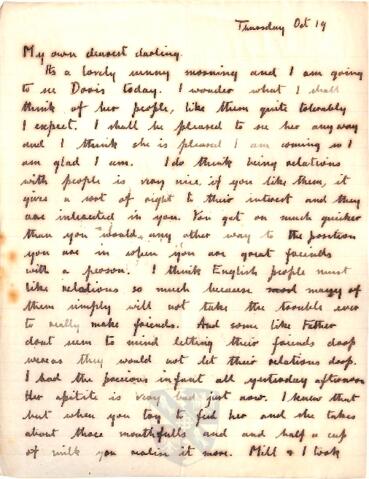 Thursday Oct 19
My own dearest darling.
Its a lovely sunny morning and I am going
to see Doris today. I wonder what I shall
think of her people, like them quite tolerably
I expect. I shall be pleased to see her anyway
and I think she is pleased I am coming so I
am glad I am. I do think being relations
with people is very nice if you like them, it
gives a sort of right to their interest and they
are interested in you. You get on much quicker
than you would any other way to the position
you are in when you are great friends
with a person. I think English people must
like relations so much because many of
them simply will not take the trouble ever
to really make friends. And some like Father
dont seem to mind letting their friends drop
weras they would not let their relations drop.
I had the precious infant all yesterday afternoon
Her apitite is very bad just now. I knew that
but when you try to feed her and she takes
about three mouthfulls and and half a cup
of milk you realise it more. Mill & I took